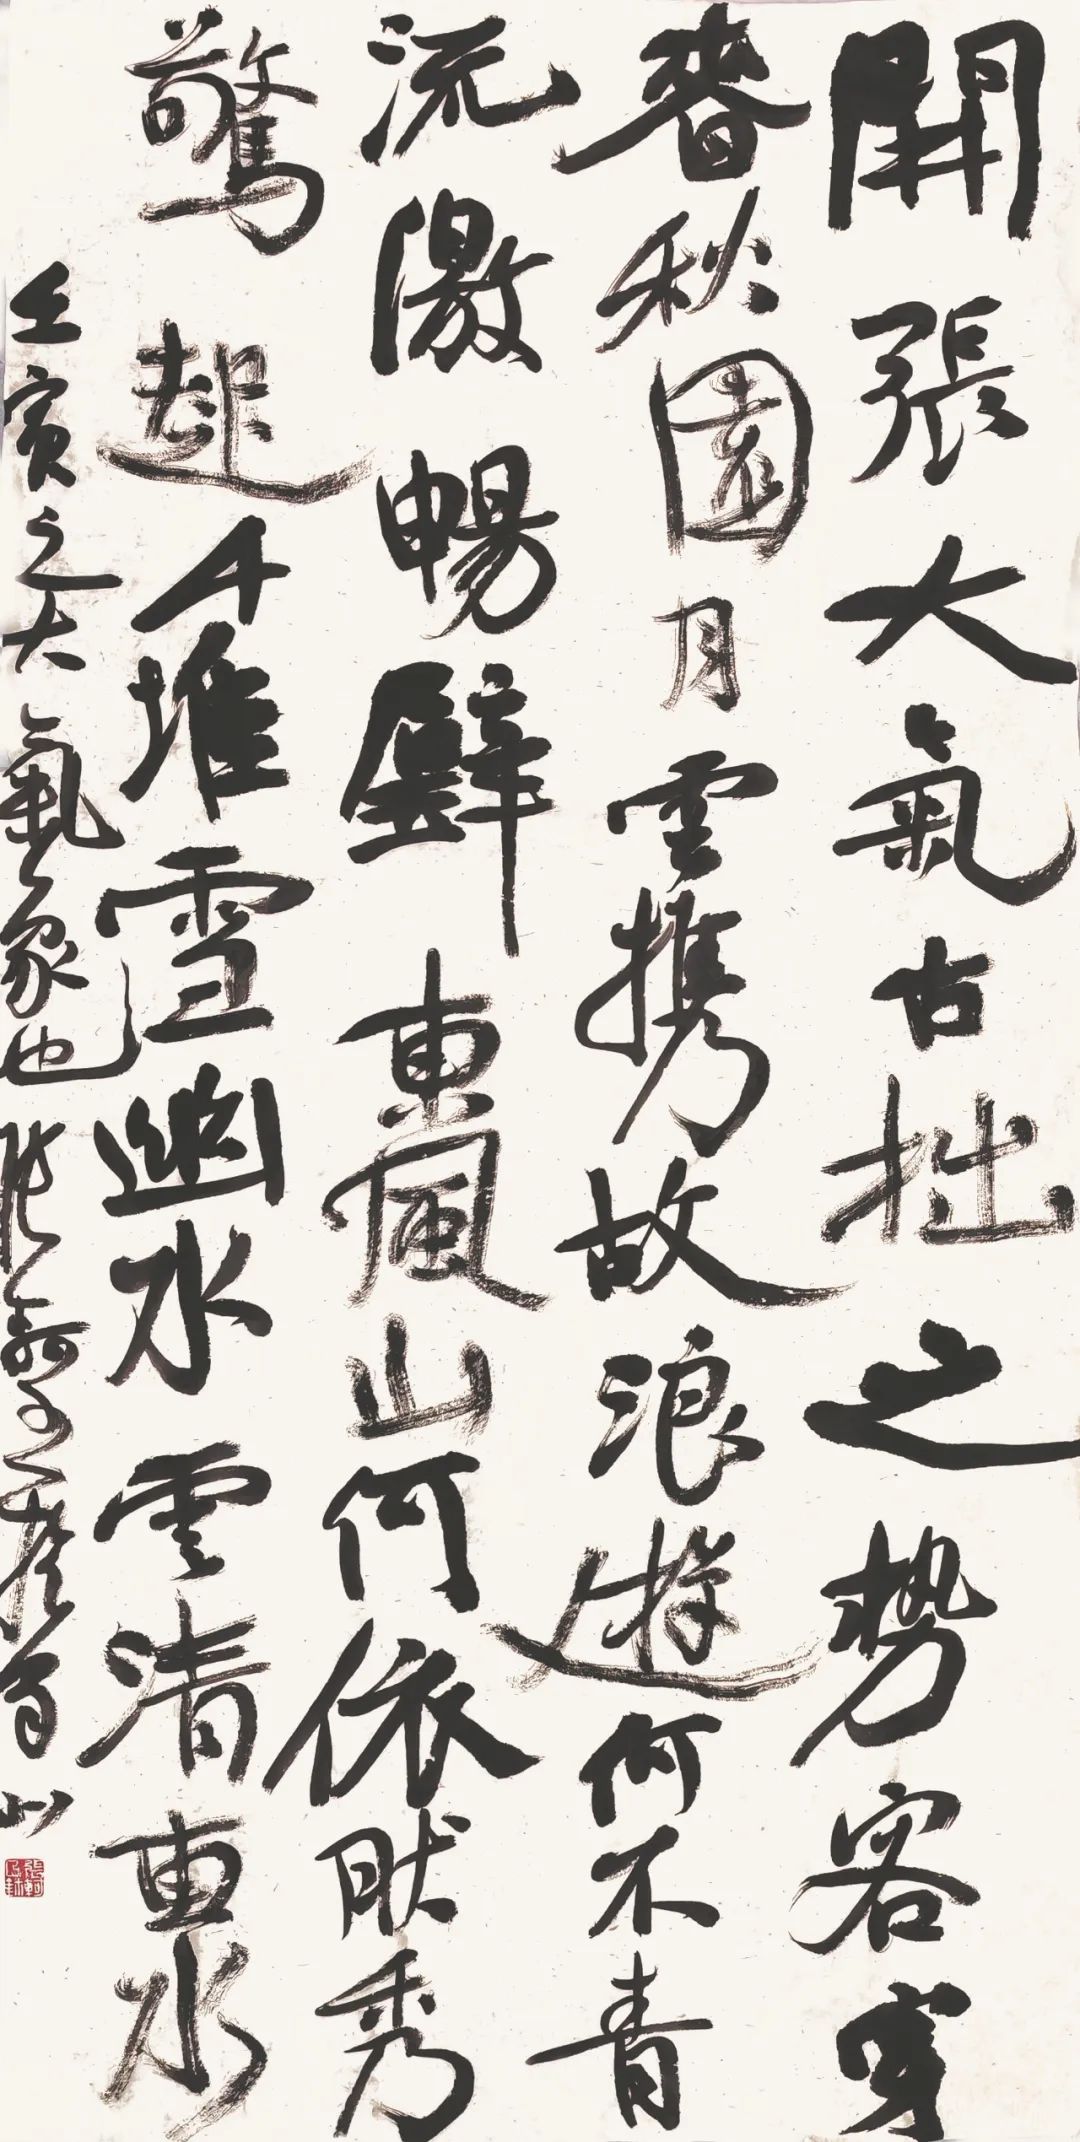 開張大氣古拙之势客穿
春秋園月雲携故浪遊何不青
流激暢壁東風山何依然秀
驚起千堆雪幽水雲清車水
壬寅之大氣象也張